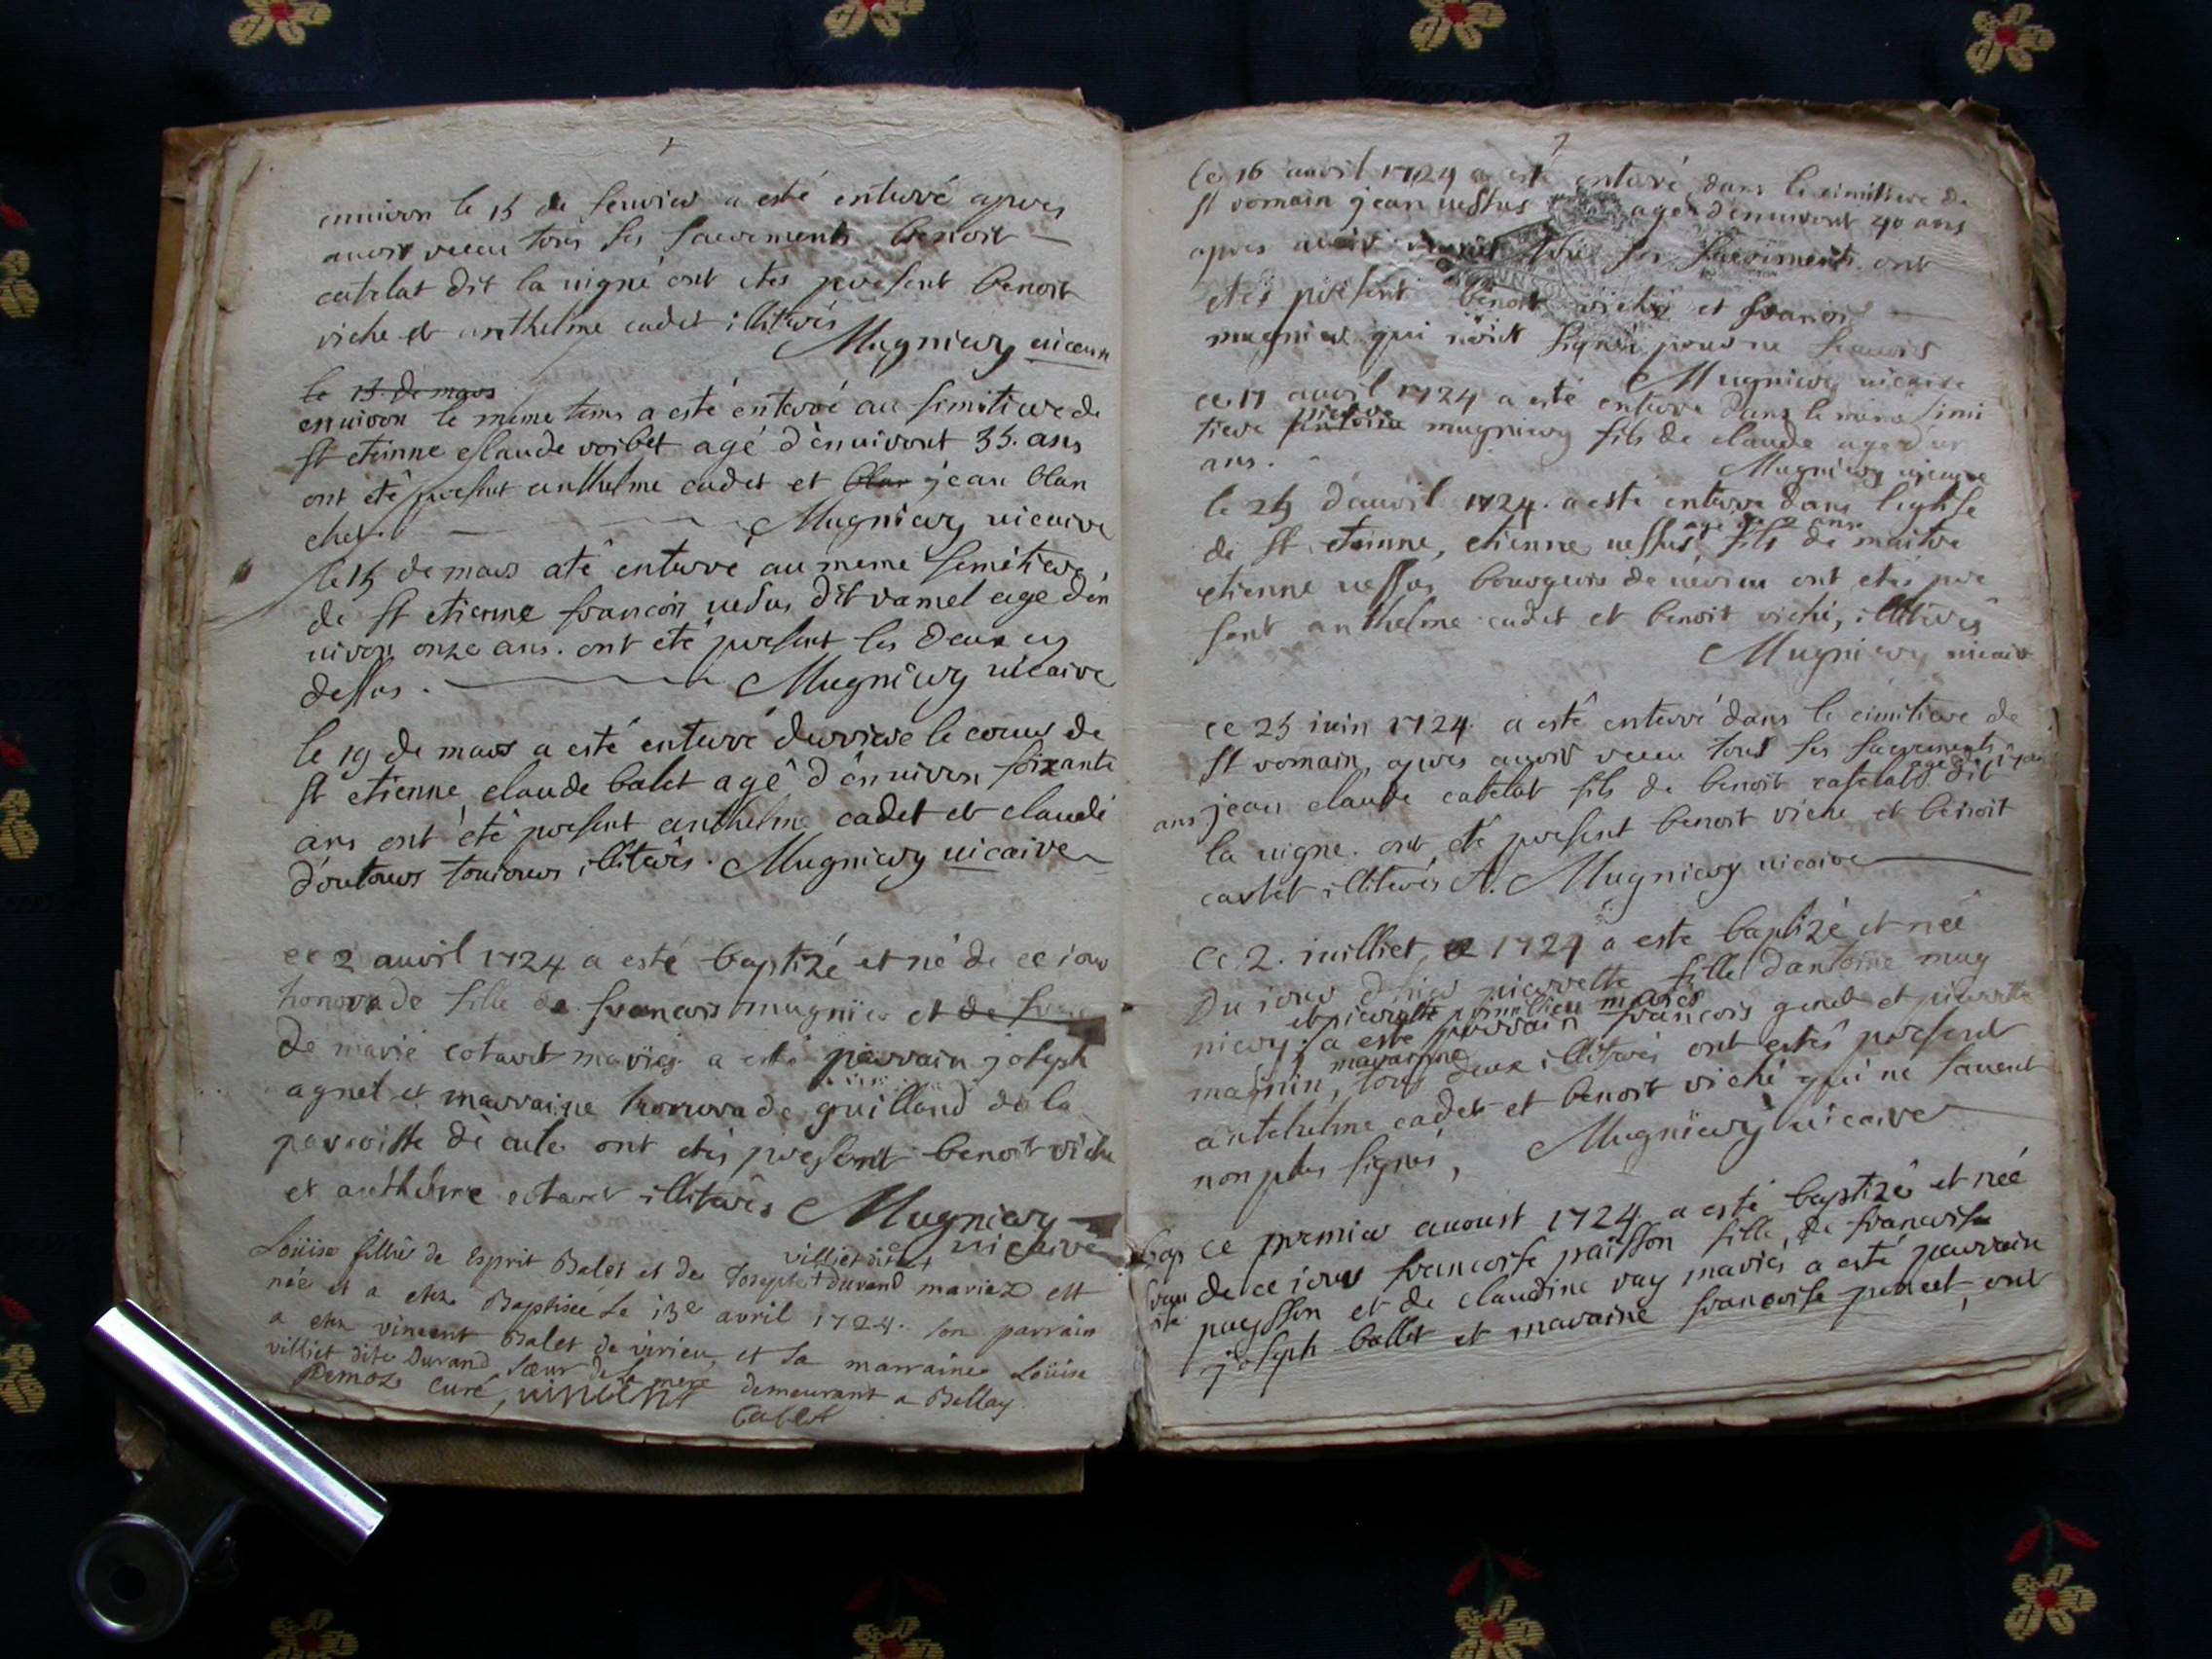 enuiron le 15 de feurier a esté enterré apres
auoir receu tous ses sacrements benoit
catelat dit la uigne ont etes present benoit
viche et anthelme cadet illiterés
Mugniery uicaire
le 15 de mars
enuiron le meme tems a esté enterré au simitiere de
st etienne claude voibet agé d'enuiront 35. ans
ont eté present anthelme cadet et blan jean blan
chet. Mugniery uicaire
le 15 de mars a té enterré au meme semitiere
de st etienne francois uesus dit ramel age d'en
uiron onze ans. ont eté present les deux cy
dessus. Mugniery uicaire
le 19 de mars a esté enterré derriere le coeur de
st etienne claude balet agé d'enuiron soixante
ans ont été present anthelme cadet et claude
d'outours touiours illiterés. Mugniery uicaire
ce 2 auril 1724 a esté baptizé et né de ce iour
honorade fille de francois mugnier et de
de marie cotaret mariés a esté parrain joseph
agnet et marraine honnorade guilland de la
parroisse de cule ont etés presennt benoit viche
et anthelme cotaret illiterés Mugniery
uicaire
Loüise fillie de Esprit Balet et de Josephet villiet ditet Durand mariez est
née et a ete Baptisée le 13e avril 1724. son parrain
a ete vincent Balet de virieu, et la marraine Loüise
villiet dite Durand sœur de la mere demeurant a Bellay
Demoz curé, uincent
balet
2
ce 16 auril 1724 a esté enterré dans le cimitiere de
st romain jean uessus agé d'enuiront 40 ans
apres auoir receut tous ses sacrements ont
etés present benoit viche et francois
mugnier qui n'ont signés pour ne scauoir
Mugniery uicaire
ce 17 auril 1724 a esté enterré dans le meme simi
tiere antoine pierre mugniery fils de claude age d'un
ans.
Mugniery uicaire
le 25 d'auril 1724. a esté enterré dans l'eglise
de st etienne, etienne uessus agé de 2 ans fils de maitre
etienne uessus bourgeois de uirieu ont etés pre
sent anthelme cadet et benoit viché, illiterés
Mugniery uicaire
ce 25 iuin 1724. a esté enterré dans le cimitiere de
st romain, apres auoir receu tous ses sacrements,
ans jean claude catelat fils de benoit catelat dit
la uigne. ont été present benoit viche et benoit
carlet illiterés A. Mugniery uicaire
ce 2. iuilliet 1724 a este baptizé et née
du iour d'hier pierrette fille d'antoine mug
niery, et pierrette mariés a esté parrain francois genet et pierrette
magnin, marainne tous deux illiterés ont estés present
antehelme cadet et benoit viché qui ne sauent
non plus signer, Mugniery uicaire
bap ce premier auoust 1724 a esté baptizé et née
de ce iour francoise paisson fille, de francoise
paysson et de claudine ray mariés a esté parrain
joseph ballet et maraine francoise poncet, ont